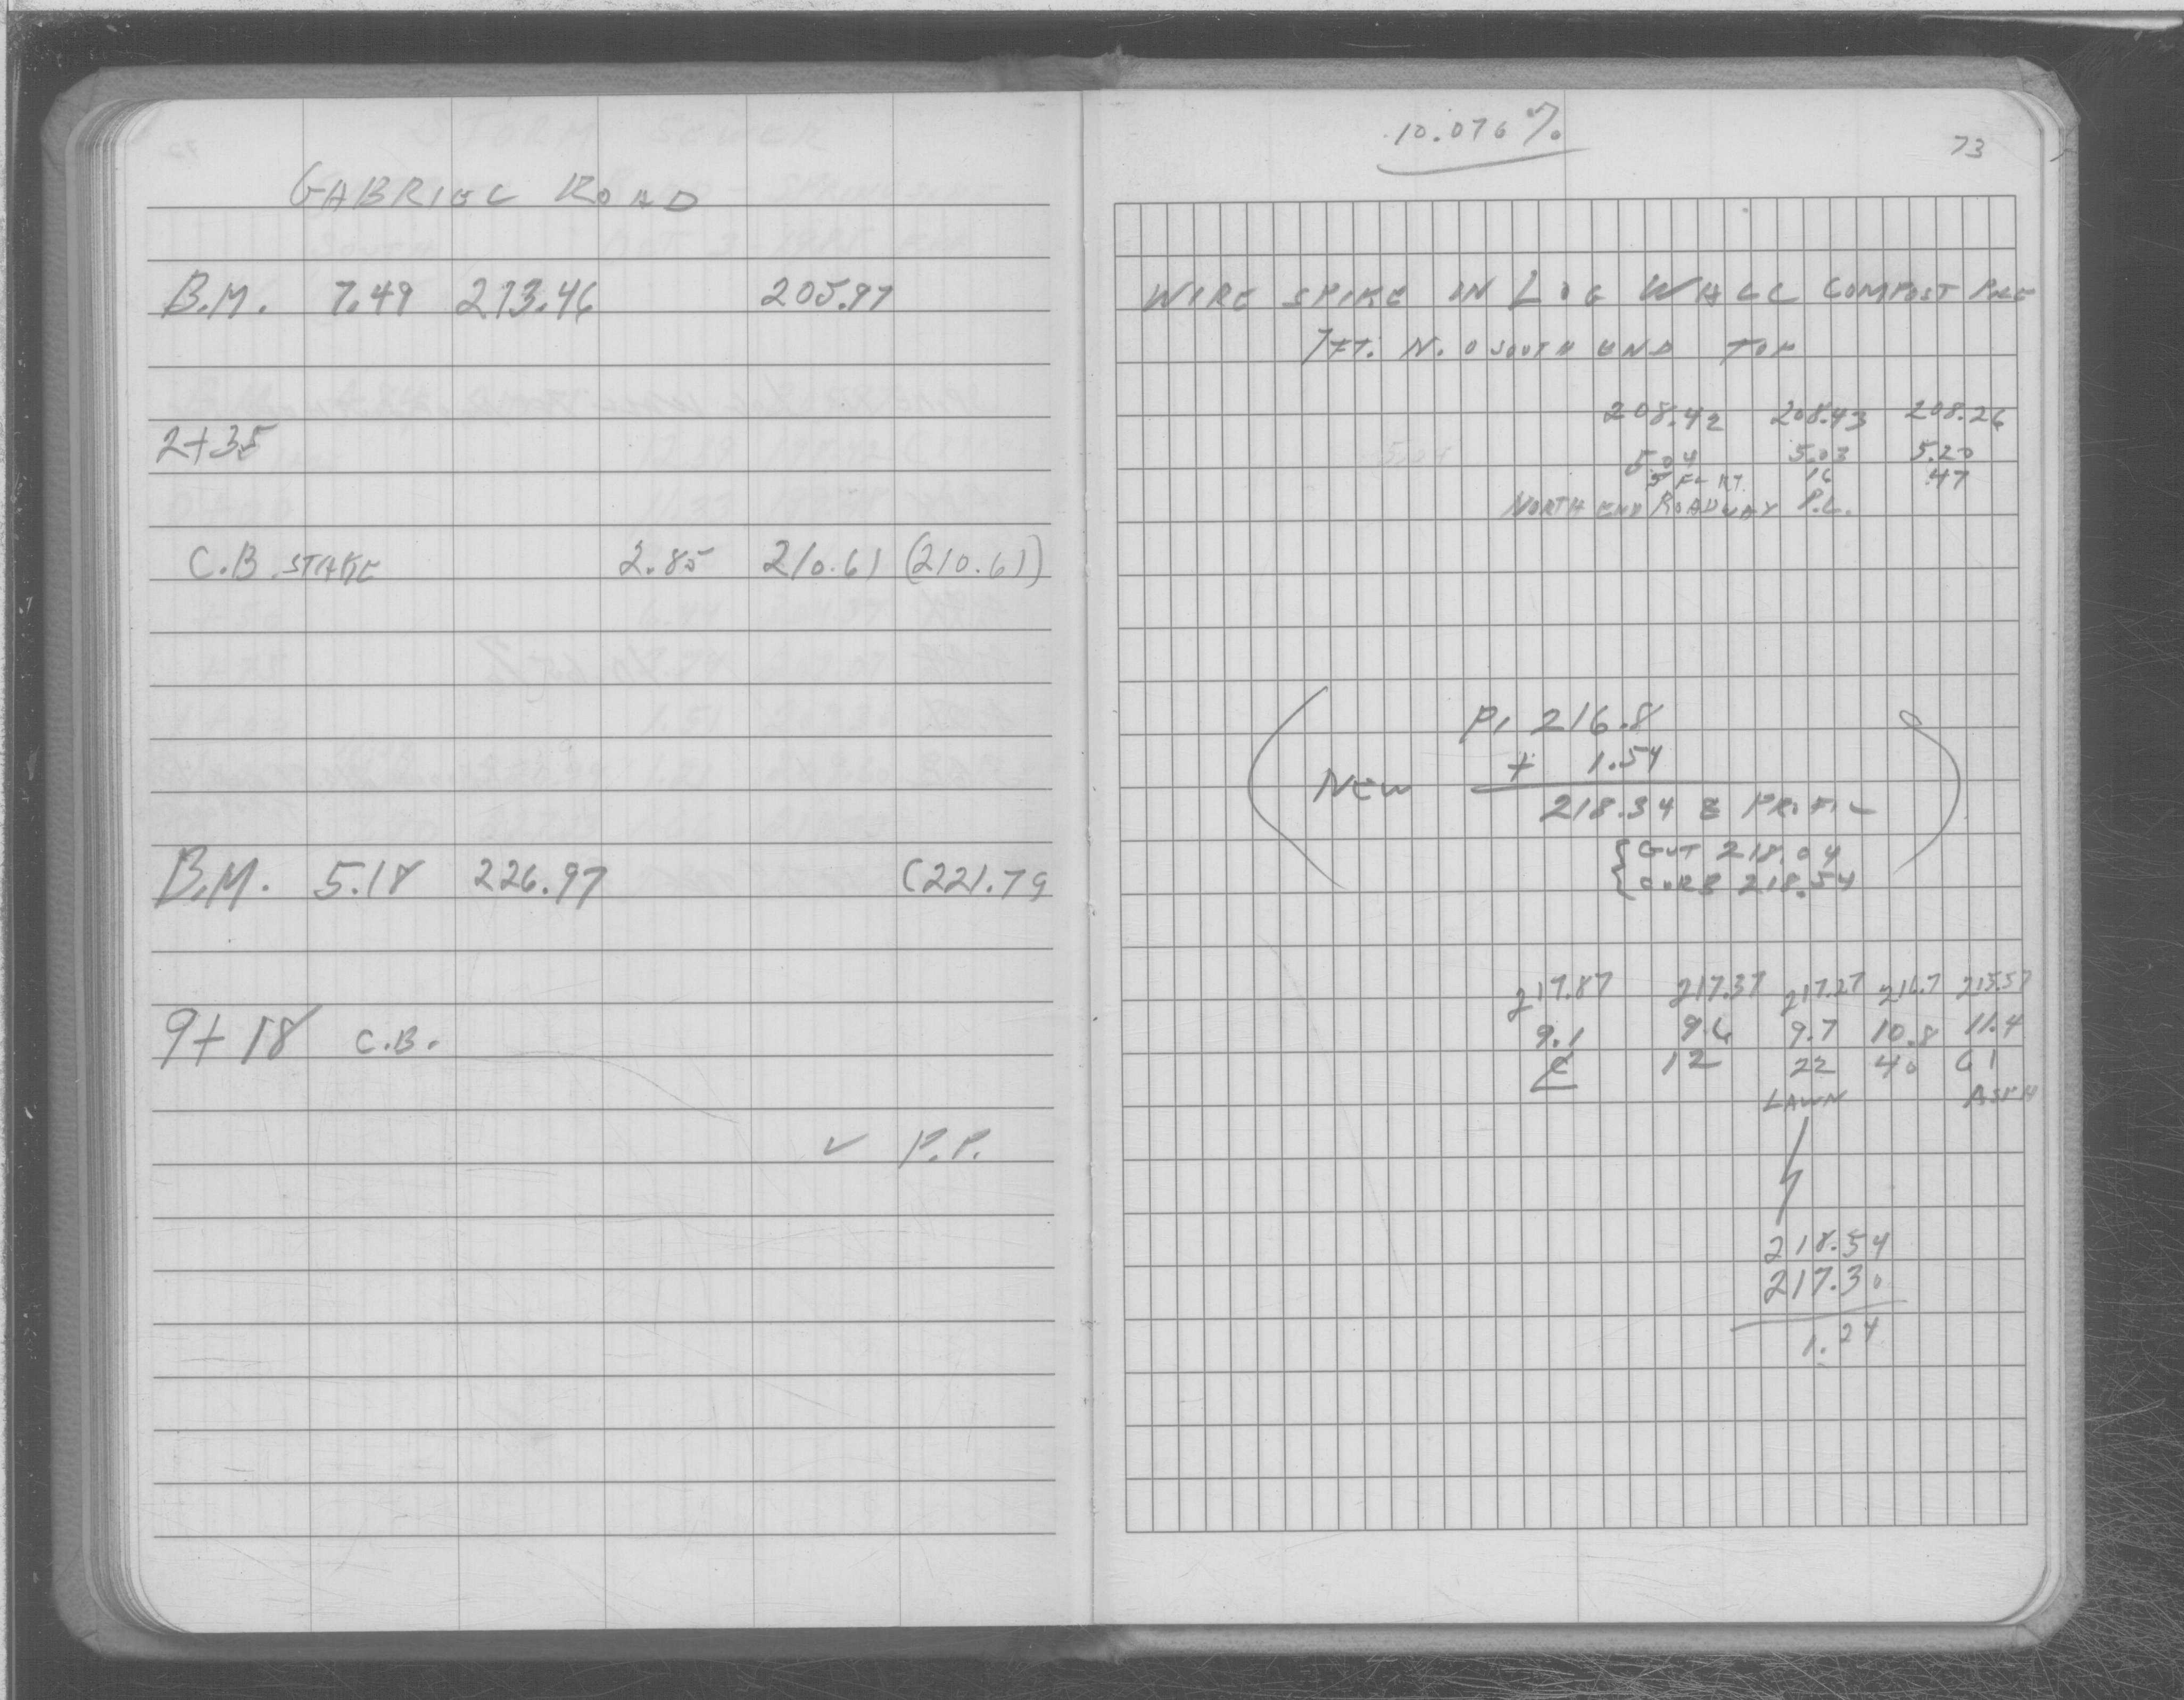 GABRIEL ROAD
B.M. 7.49 213.46 205.97
2+35
C.B. STAKE 2.85 210.61 (210.61)
B.M. 5.18 226.97 (221.79
9+18 C.B.
✓ P.P.
10.076%
73
WIRE SPIKE IN LOG WALL COMPOST PILE
7FT. N. O SOUTH END TOP
208.42 208.43 208.26
5.04 5.03 5.20
5 FL RT. 16 47
NORTH END ROADWAY P.L.
P, 216.8
+ 1.54
NEW
218.34 PROFIL
{ GUT 218.04
{ CURB 218.54
217.87 217.37 217.27 216.7 215.57
9.1 9.6 9.7 10.8 11.4
℄ 12 22 40 61
LAWN ASPH
218.54
217.30
1.24